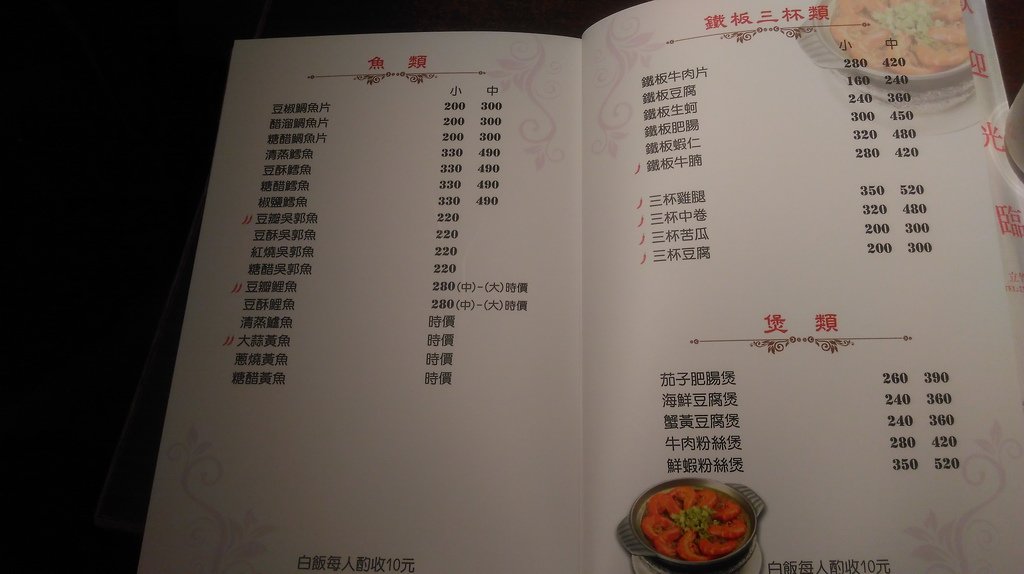 魚 類
小 中
豆椒鯛魚片 200 300
醋溜鯛魚片 200 300
糖醋鯛魚片 200 300
清蒸鱈魚 330 490
豆酥鱈魚 330 490
糖醋鱈魚 330 490
椒鹽鱈魚 330 490
豆瓣吳郭魚 220
豆酥吳郭魚 220
紅燒吳郭魚 220
糖醋吳郭魚 220
豆瓣鯉魚 280(中)-(大)時價
豆酥鯉魚 280(中)-(大)時價
清蒸鱸魚 時價
大蒜黃魚 時價
蔥燒黃魚 時價
糖醋黃魚 時價
白飯每人酌收10元
鐵板三杯類
小 中
鐵板牛肉片 280 420
鐵板豆腐 160 240
鐵板生蚵 240 360
鐵板肥腸 300 450
鐵板蝦仁 320 480
鐵板牛腩 280 420
三杯雞腿 350 520
三杯中卷 320 480
三杯苦瓜 200 300
三杯豆腐 200 300
煲 類
茄子肥腸煲 260 390
海鮮豆腐煲 240 360
蟹黃豆腐煲 240 360
牛肉粉絲煲 280 420
鮮蝦粉絲煲 350 520
白飯每人酌收10元
迎
光
臨